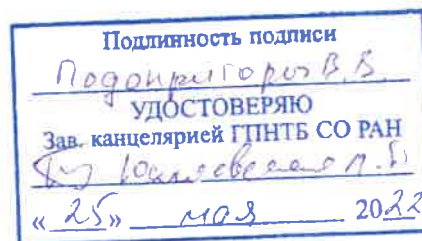 Подлинность подписи
Подопригоры В. В.
УДОСТОВЕРЯЮ
Зав. канцелярией ГПНТБ СО РАН
«25» мая 2022